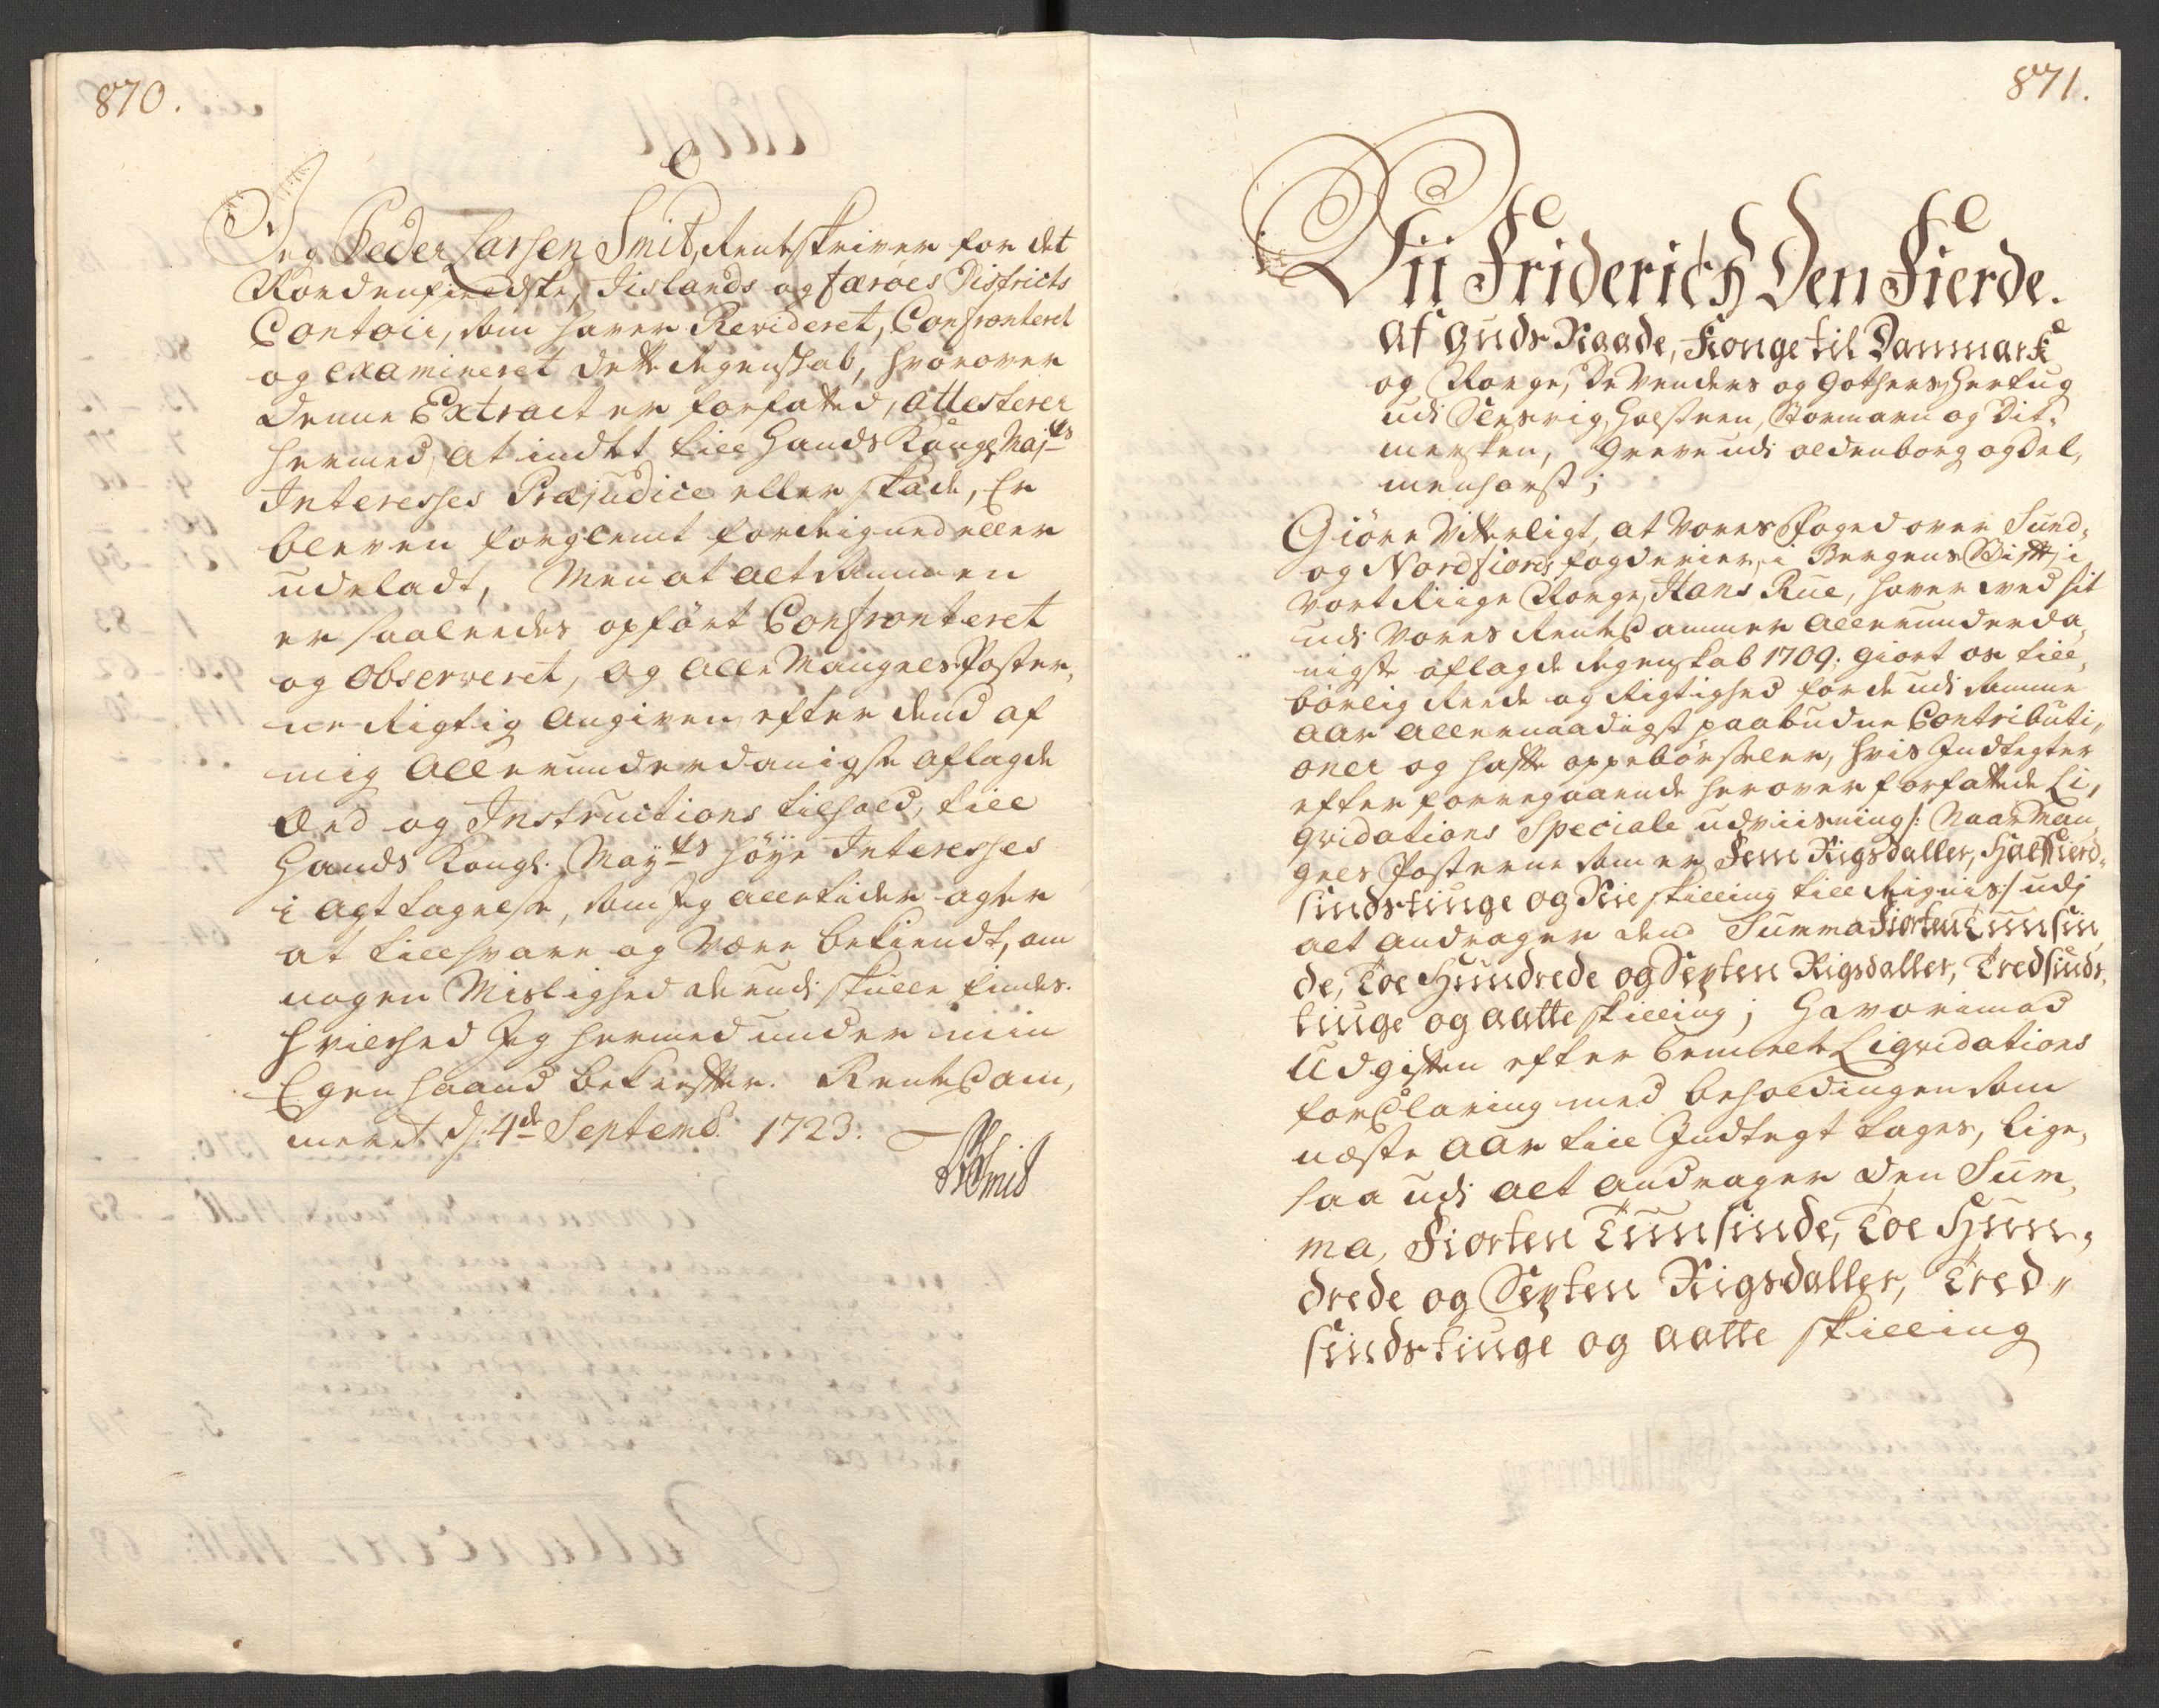 870.
Jeg Peder Larsen Smit, Rentskriver for det
Nordenfieldske, Iislands og færöes Districts
Contoir, som haver Revideret, Confronteret
og examineret dette Regenskab, hvorover
denne Extract er forfatted, attesterer
hermed, at indtet till Hands Kongl Majts
Interesses Præjudice eller skade, Er
bleven forglemt forbigaaed eller
udeladt, Men at alt sammen
er saaleedes opfört Confronteret
og observeret, og alle Mangels Poster,
ne Rigtig angiven efter dend af
mig allerunderdanigste aflagde
Eed og Instructions tilhold, till
Hands Kongl. Mayts höye Interesses
i agttagelse, som jeg alletider agter
at tillsvare og være bekiendt, om
nogen Mislighed derudi skulle findes.
Hvilched Jeg hermed under min
Egen haand bekræfter. RenteCam,
meret d. 4de Septemb. 1723.
PLSmit
871.
Vii Friderich Den Fierde.
Af Guds Naade, Konge til Danmark
og Norge, de Venders og Gothers, Hertug
udi Slesvig, Holsteen, Stormarn og Dit,
mersken, Greve udi oldenborg og Del,
menhorst;
Giöre Vitterligt, at Vores Foged over Sund,
og Nordfiords fogderier, i Bergens Stift, i
Vort Riige Norge, Hans Rue, haver ved sit
udi Vores RenteCammer allerunderda,
nigste aflagde Regenskab 1709. giort os till,
börlig Reede og Rigtighed for de udi samme
Aar allernaadigst paabudne Contributi,
oner og hafte oppebörseler, hvis Indtegter
efter foregaaende herover forfattede Li,
qvidations Speciale udviisning /: Naar Man,
gels Posterne som er Fem Rigsdaller, Halfierd,
sindstiuge og Nie skilling till Regnis :/ udj
alt andrager dend Summa Fiorten Tuusin,
de, Toe Hundrede og Sexten Rigsdaller, Tredsinds,
tiuge og aatte skilling; Hvorimod
Udgiften efter bemelte Liqvidations
forClaring med beholdingen som
næste Aar till Indtegt tages, lige,
saa udi alt andrager den Sum,
ma, Fiorten Tuusinde, Toe Hun,
drede og Sexten Rigsdaller, Tred,,
sindstiuge og aatte skilling